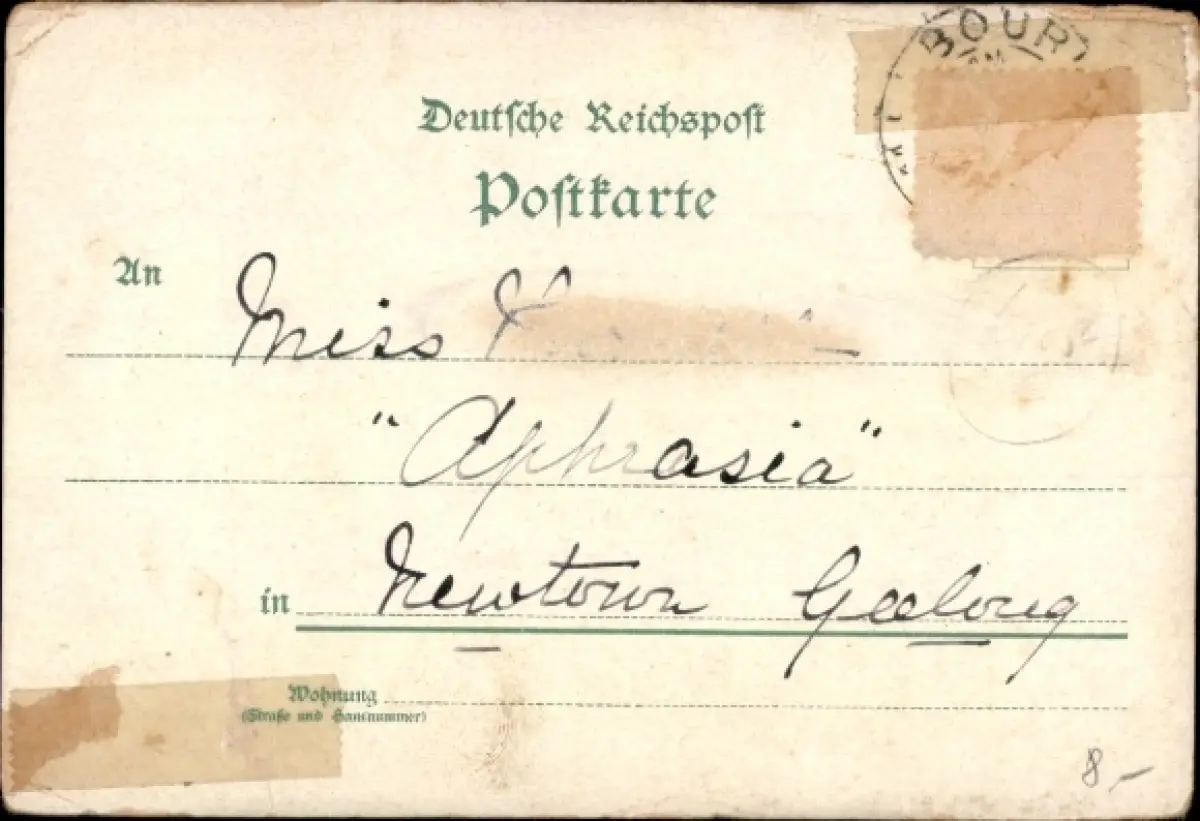 BOUR
Deutsche Reichspost
Postkarte
An
Miss
"Aphrasia"
in Newtown Geelong
Wohnung
(Straße und Hausnummer)
8,–